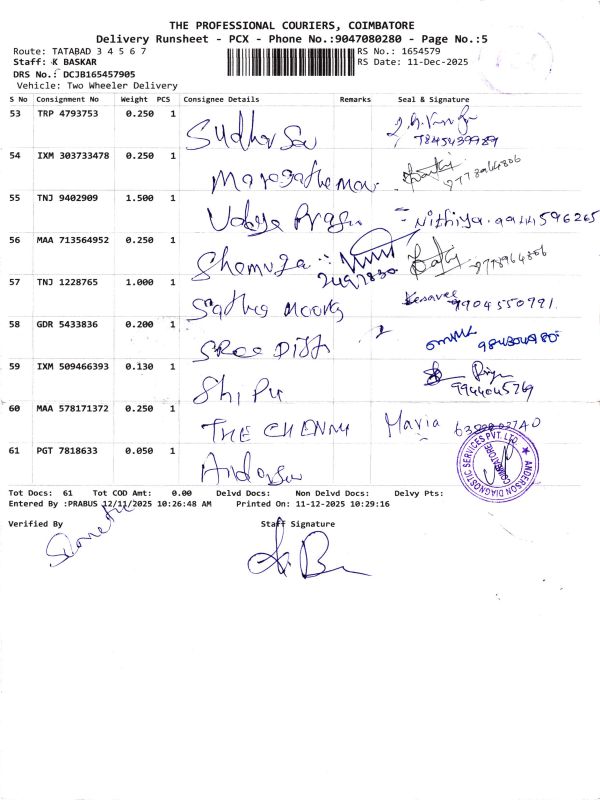 THE PROFESSIONAL COURIERS, COIMBATORE
Delivery Runsheet - PCX - Phone No.:9047080280 - Page No.:5
Route: TATABAD 3 4 5 6 7 RS No.: 1654579
Staff: K BASKAR RS Date: 11-Dec-2025
DRS No.: DCJB165457905
Vehicle: Two Wheeler Delivery
S No Consignment No Weight PCS Consignee Details Remarks Seal & Signature
53 TRP 4793753 0.250 1
7845439989
54 IXM 303733478 0.250 1
9778964806
55 TNJ 9402909 1.500 1 Udaya Prasu - Nithiya.
56 MAA 713564952 0.250 1
9778964806
57 TNJ 1228765 1.000 1 Kesavee 9904550791.
58 GDR 5433836 0.200 1 SREE
59 IXM 509466393 0.130 1 Shi Pu Priya
9944045769
60 MAA 578171372 0.250 1 THE CHENNAI Maria
61 PGT 7818633 0.050 1 Anderson
ANDERSON DIAGNOSTIC SERVICES PVT. LTD.
COIMBATORE
Tot Docs: 61 Tot COD Amt: 0.00 Delvd Docs: Non Delvd Docs: Delvy Pts:
Entered By :PRABUS 12/11/2025 10:26:48 AM Printed On: 11-12-2025 10:29:16
Verified By Staff Signature